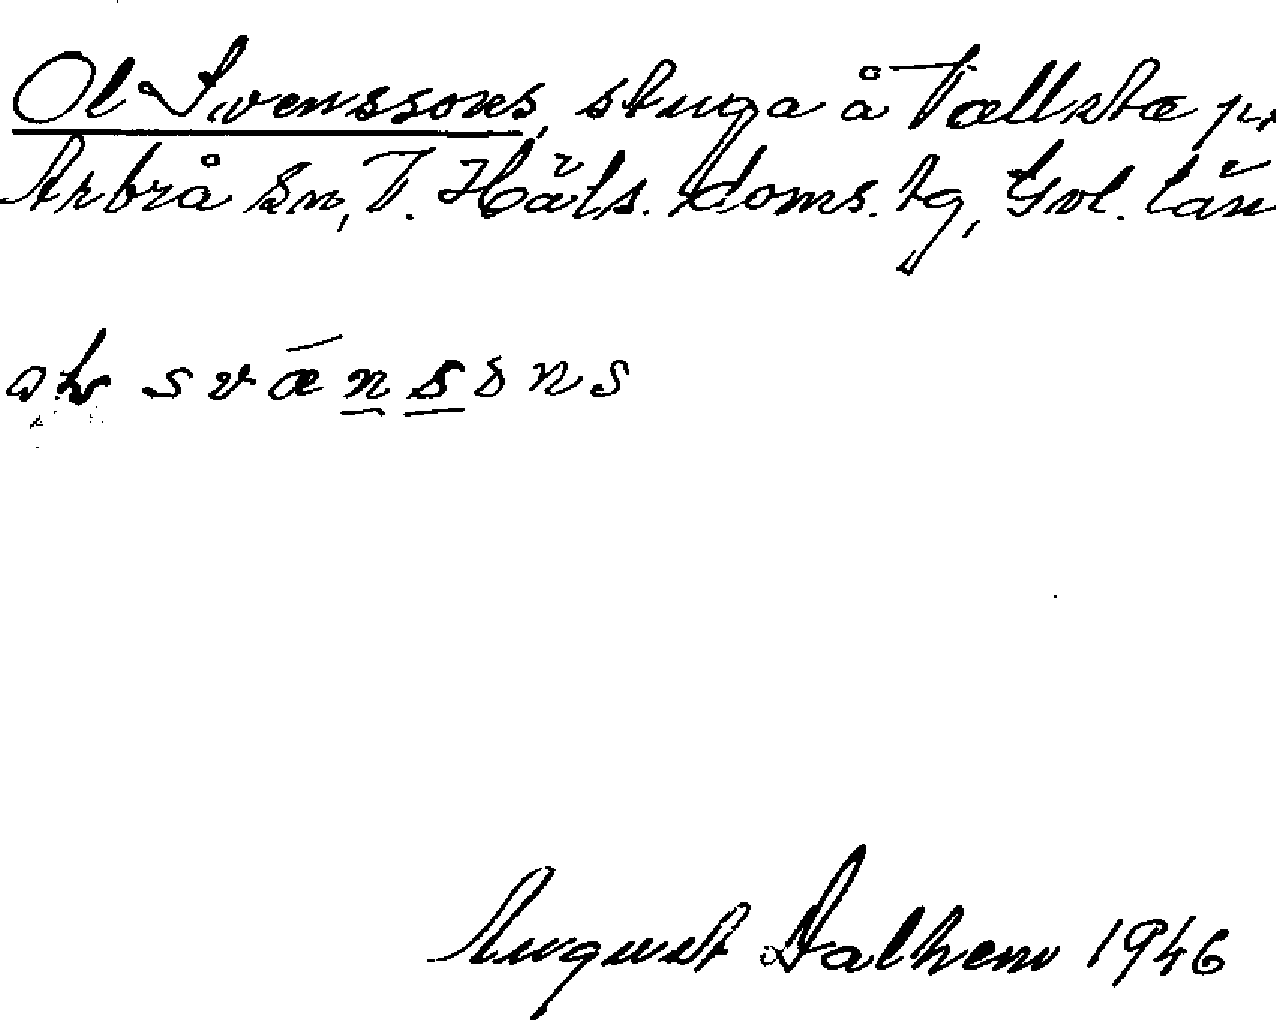 Ol Svenssons, stuga å Vallsta
Arbrå Sn, V. Häls. doms. tg, Gvl. län
svænsons
August Dalhem 1946